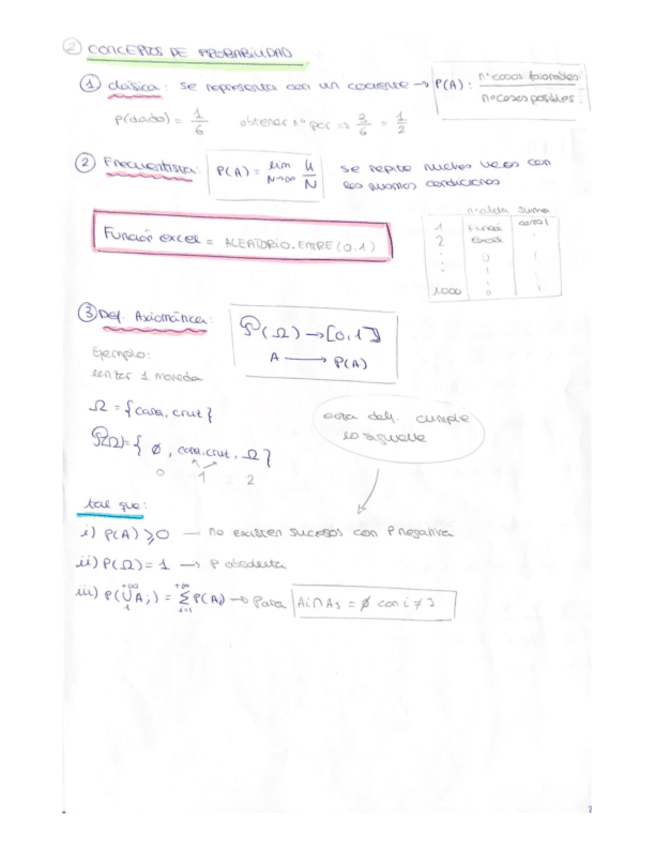 ② CONCEPTOS DE PROBABILIDAD
① clásica: se representa con un cociente → P(A): nº casos favorables / nº casos posibles
P(dado) = 1/6 obtener nº par => 3/6 = 1/2
② Frecuentista: P(A) = lim N→∞ /N se repite muchas veces con
las mismas condiciones
Función excel = ALEATORIO.ENTRE(0.1)
suma
1 Función
2
0 1
: 1
1000 0
③ Def. Axiomática: P(Ω) → [0,1]
A → P(A)
Ejemplo:
lanzar 1 moneda
Ω = {cara, cruz}
P(Ω)= { ∅, cara, cruz, Ω }
0 1 2
esta def. cumple
lo siguiente
tal que:
i) P(A) ⩾ 0 — no existen sucesos con P negativa
ii) P(Ω) = 1 → P
iii) P(∪Ai) = Σ P(Ai) → Para Ai ∩ Aj = ∅ con i ≠ j